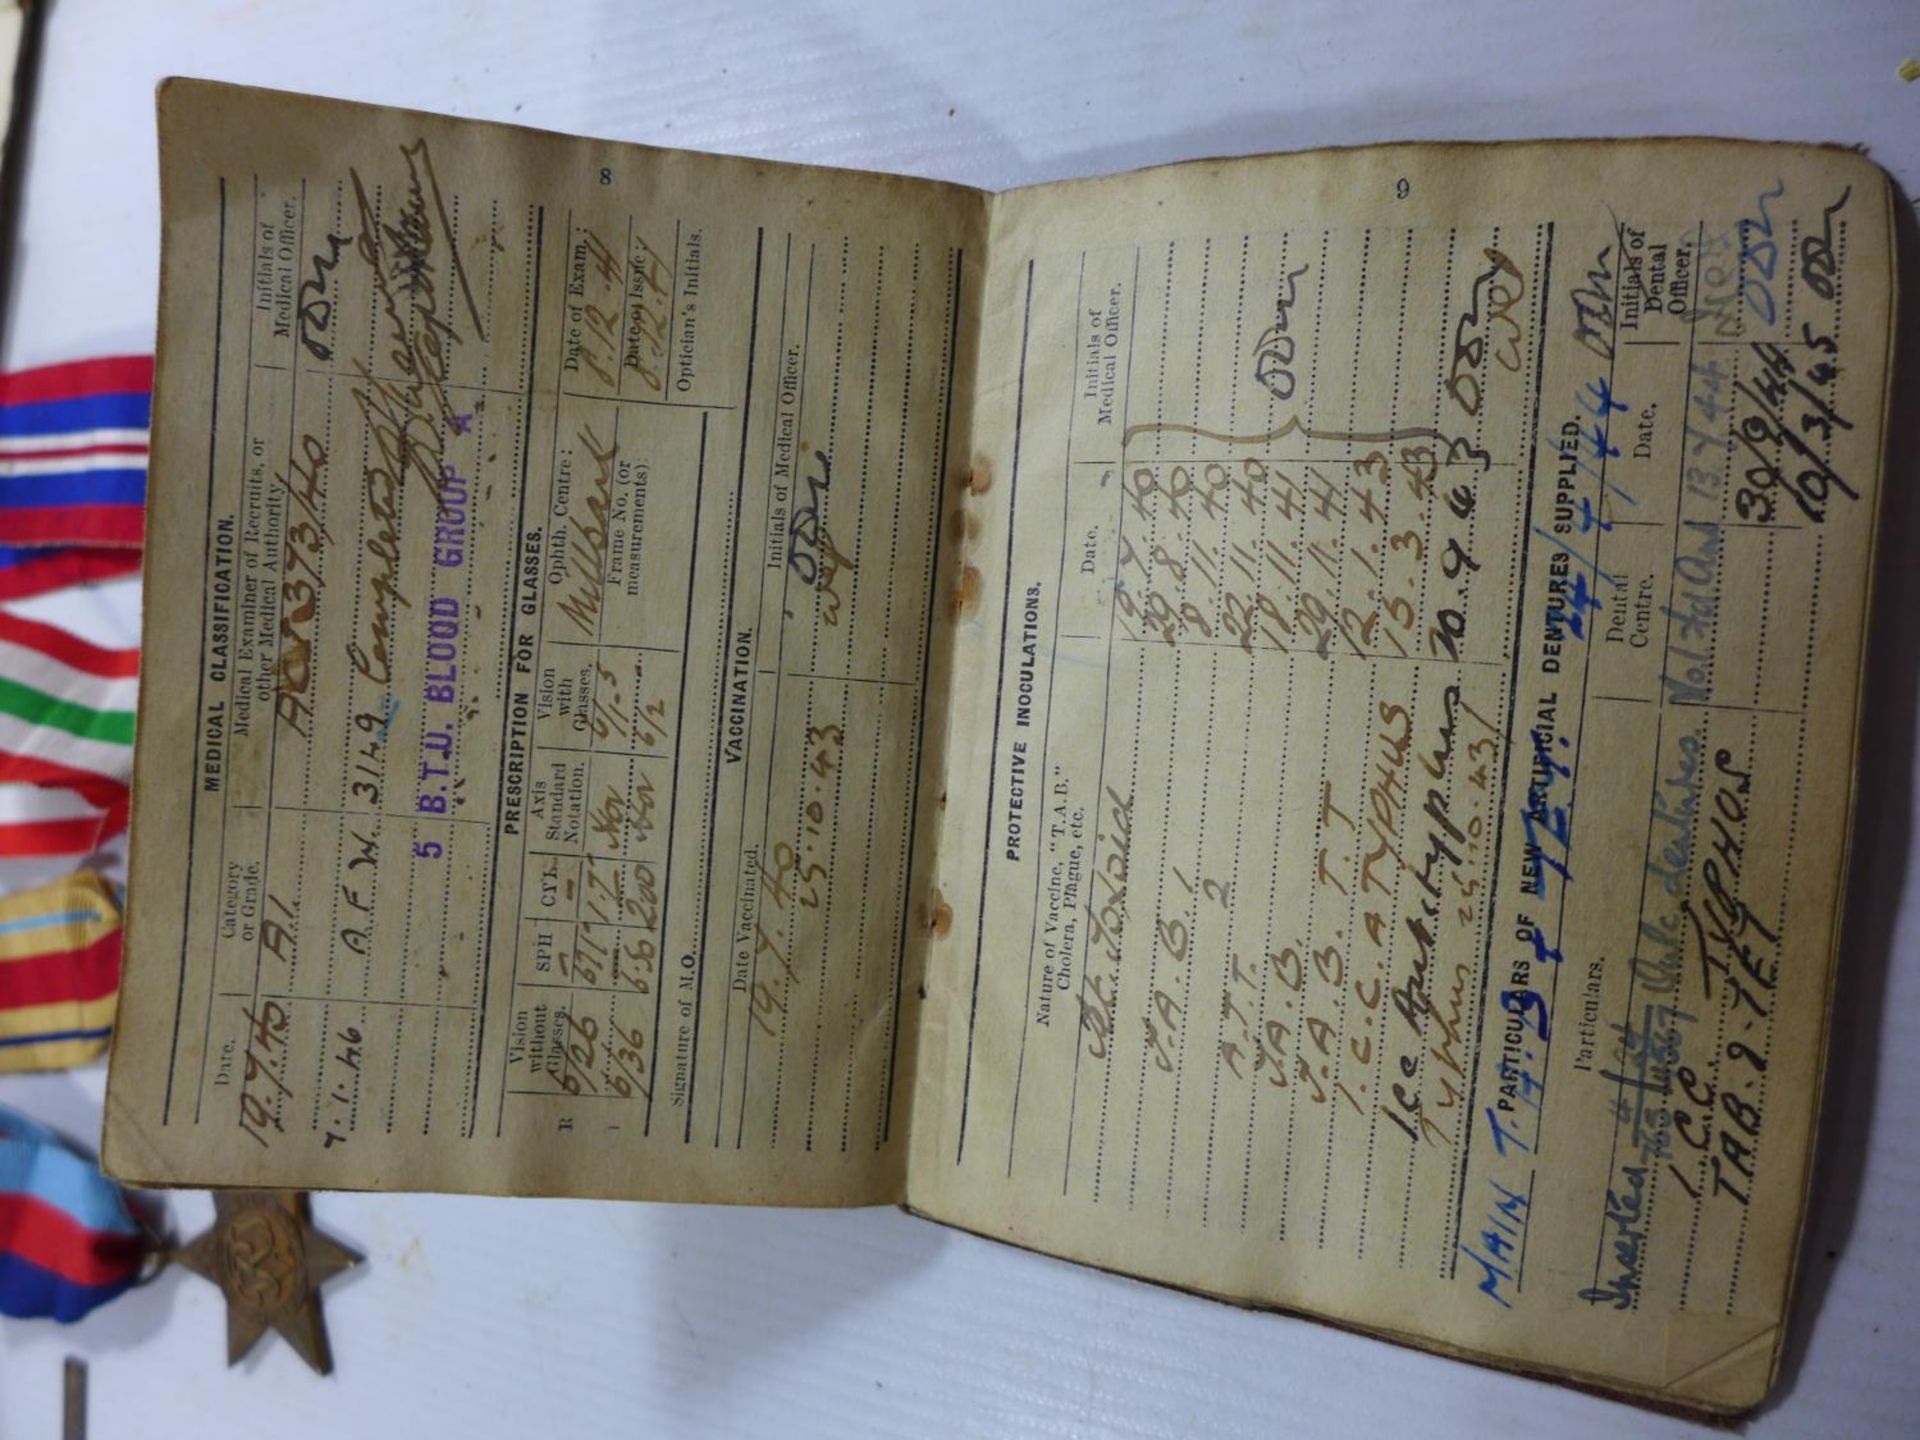 MEDICAL CLASSIFICATION.
Date.
Category or Grade.
Medical Examiner of Recruits, or other Medical Authority
Initials of Medical Officer.
19.7.40 A1.
7.1.46 A F W. 3149 Completed
5 B.T.U. BLOOD GROUP A
PRESCRIPTION FOR GLASSES.
Vision without Glasses.
SPH
CYL.
Axis Standard Notation.
Vision with Glasses.
Ophth. Centre:
Millbank
Date of Exam.:
8.12.41
Frame No. (or measurements):
Date of Issue:
8.12.41
R 6/26
6/36
6/12
Optician's Initials.
Signature of M.O.
VACCINATION.
Date Vaccinated.
Initials of Medical Officer.
19.7.40
25.10.43
8
PROTECTIVE INOCULATIONS.
Nature of Vaccine, "T.A.B." Cholera, Plague, etc.
Date.
Initials of Medical Officer.
Tet. Toxoid 19.7.40
29.8.40
T.A.B. 1 8.11.40
2 22.11.40
A.T.T. 18.11.41
T.A.B. 29.11.41
T.A.B. T.T 12.1.43
1.C.C. A TYPHUS 15.3.43
1 cc Anti typhus 20.9.43
Typhus 25.10.43
MAIN T.A.B & TET. 24/4/44
PARTICULARS OF NEW ARTIFICIAL DENTURES SUPPLIED.
Particulars.
Dental Centre.
Date.
Initials of Dental Officer.
Inserted
dentures. 13 7 44
1 C.C. TYPHUS 30/9/44
TAB. & TET 10/3/45
9